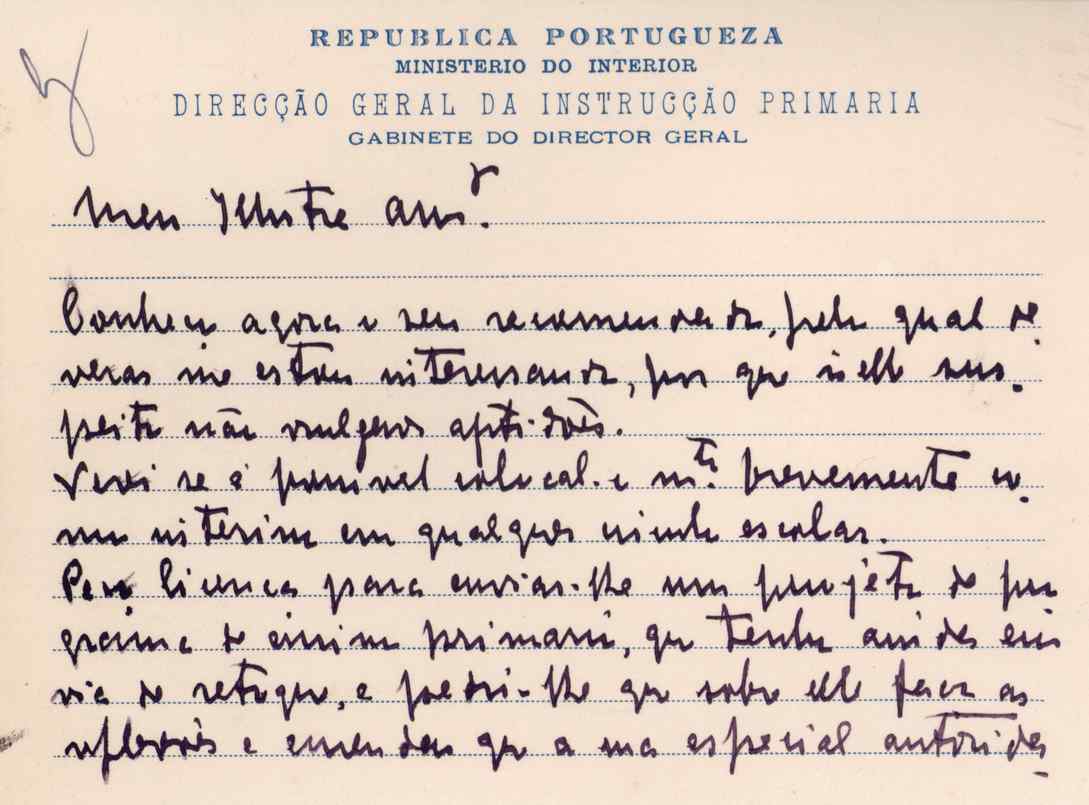 REPUBLICA PORTUGUEZA
MINISTERIO DO INTERIOR
DIRECÇÃO GERAL DA INSTRUCÇÃO PRIMARIA
GABINETE DO DIRECTOR GERAL
Meu Illustre Amº.
Conheci agora o seu recomendado, pelo qual de
veras me estou interessando, por que n'elle sus-
peito não vulgares aptidões.
Verei se é possivel colocal-o mto. brevemente co-
mo interino em qualquer circulo escolar.
Peço licença para enviar-lhe um projéto de pro
grama de ensino primario, que tenho ainda em
via de retoque, e pedir-lhe que sobre elle faça as
reflexões e emendas que a sua especial autorida-